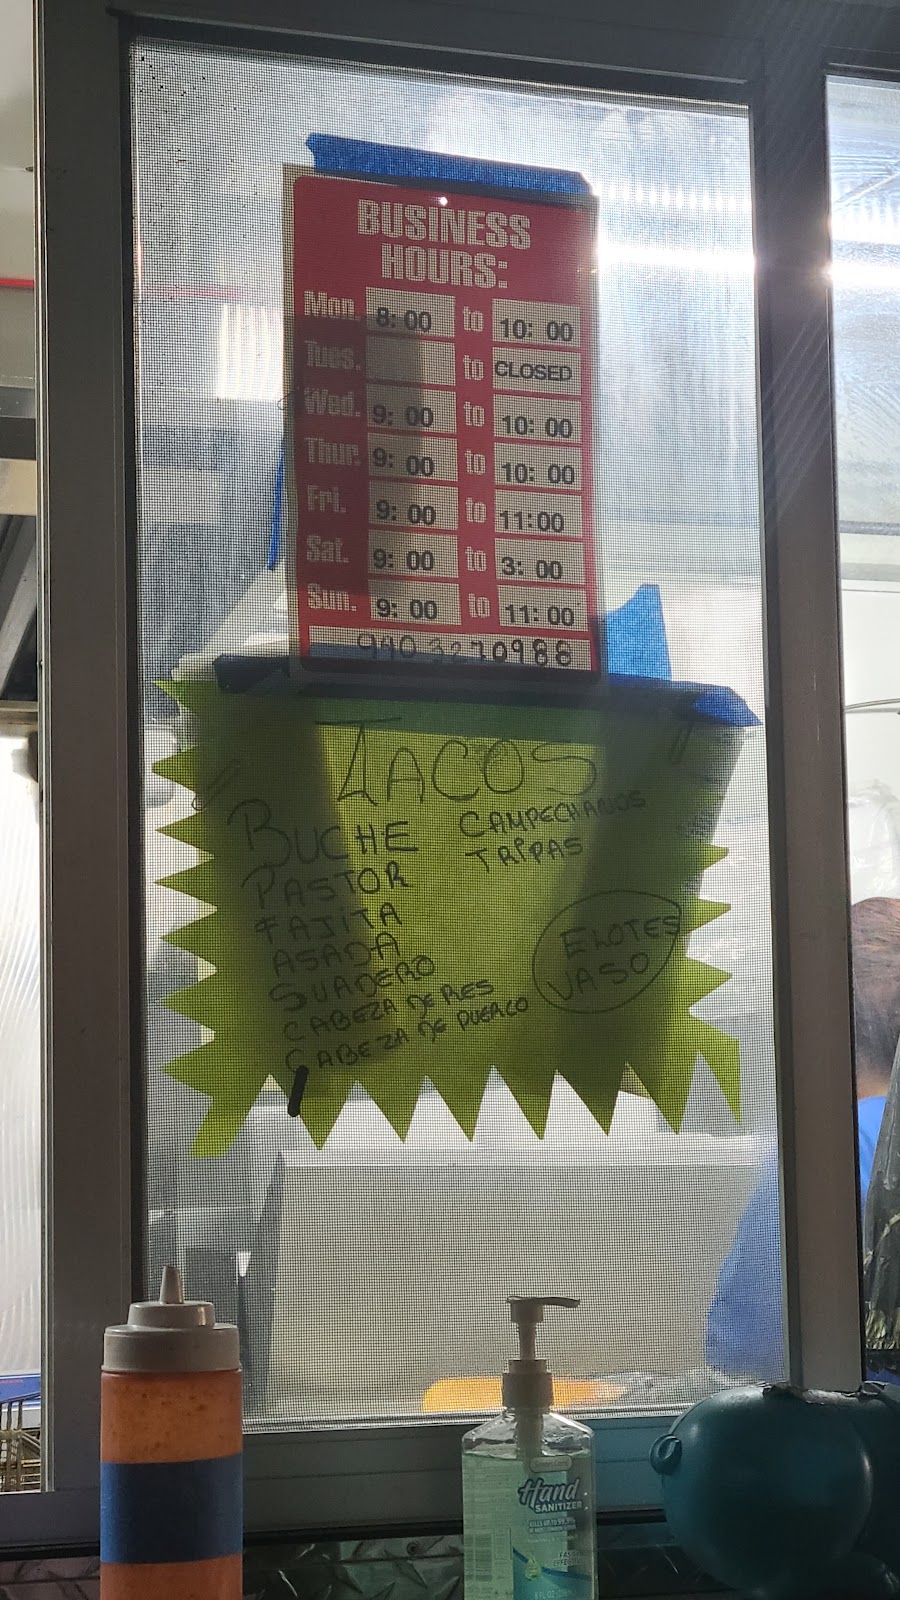 BUSINESS
HOURS:
Mon. 8:00 to 10:00
Tues. to CLOSED
Wed. 9:00 to 10:00
Thur. 9:00 to 10:00
Fri. 9:00 to 11:00
Sat. 9:00 to 3:00
Sun. 9:00 to 11:00
940 3270988
TACOS
BUCHE
PASTOR
FAJITA
ASADA
SUADERO
CABEZA DE RES
CABEZA DE PUERCO
CAMPECHANOS
TRIPAS
ELOTES
VASO
Hand
SANITIZER